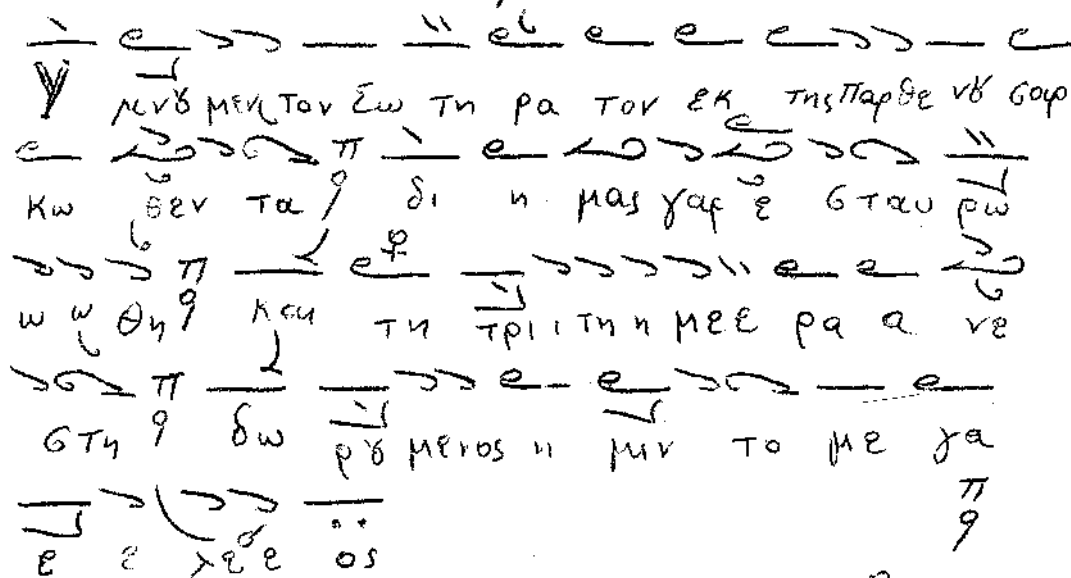 Υ μνȣ μεν τον Σω τη ρα τον εκ της Παρθε νȣ σαρ
κω θεν τα π δι η μας γαρ ε σταυ ρω
ω ω θη π και τη τρι ι τη η με ε ρα α νε
στη π δω ρȣ μενος η μιν το με γα
ε ε λε ε ε ος π